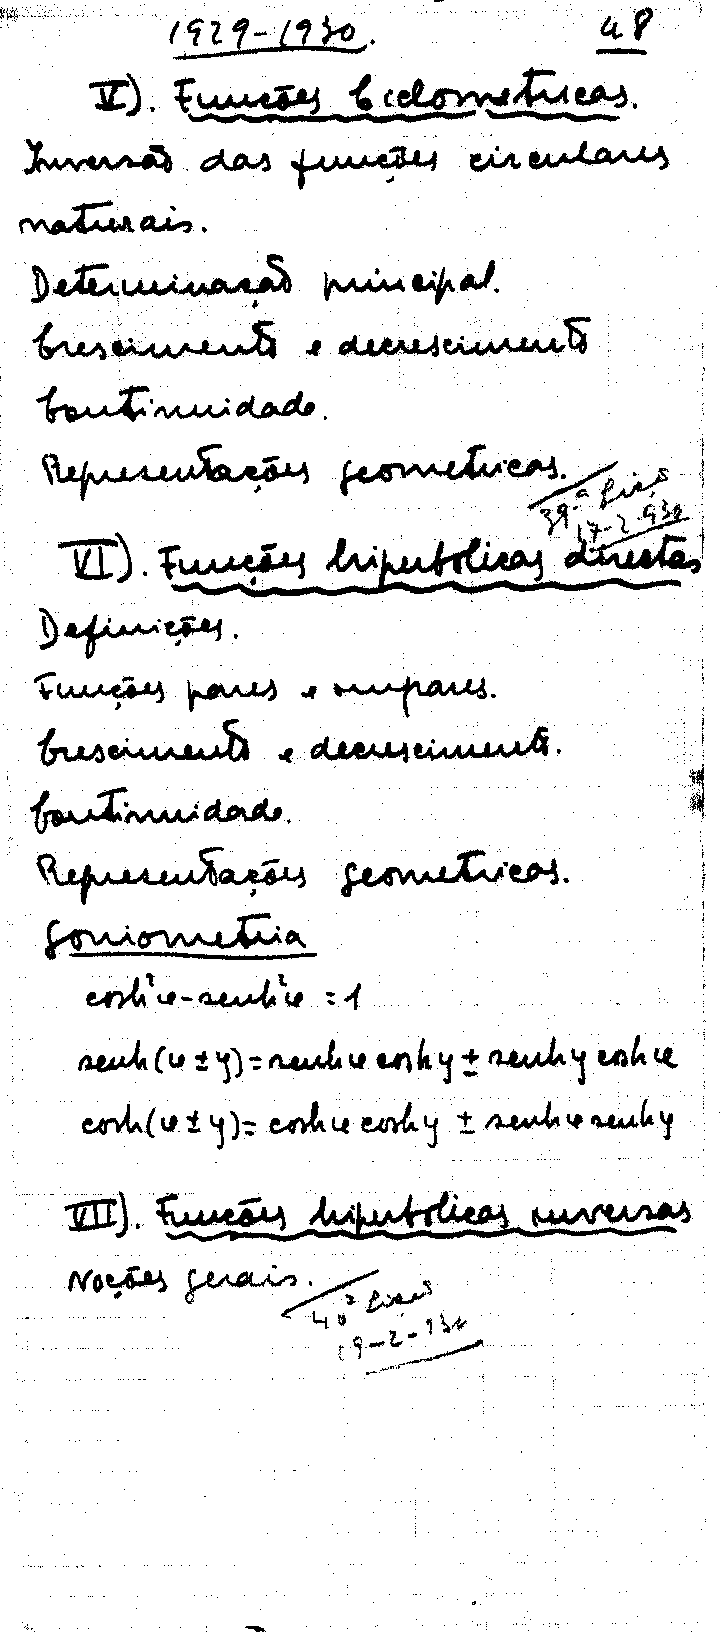 1929-1930. 48
V). Funções Ciclometricas.
Inversão das funções circulares
naturais.
Determinação principal.
Crescimento e decrescimento
Continuidade.
Representações geometricas.
39.ª Lição
17-2-930
VI). Funções hiperbolicas directas
Definições.
Funções pares e impares.
Crescimento e decrescimento.
Continuidade.
Representações geometricas.
Goniometria
cosh²x-senh²x = 1
senh(x ± y) = senh x cosh y ± senh y cosh x
cosh(x ± y) = cosh x cosh y ± senh x senh y
VII). Funções hiperbolicas inversas
Noções gerais.
40ª Lição
19-2-930